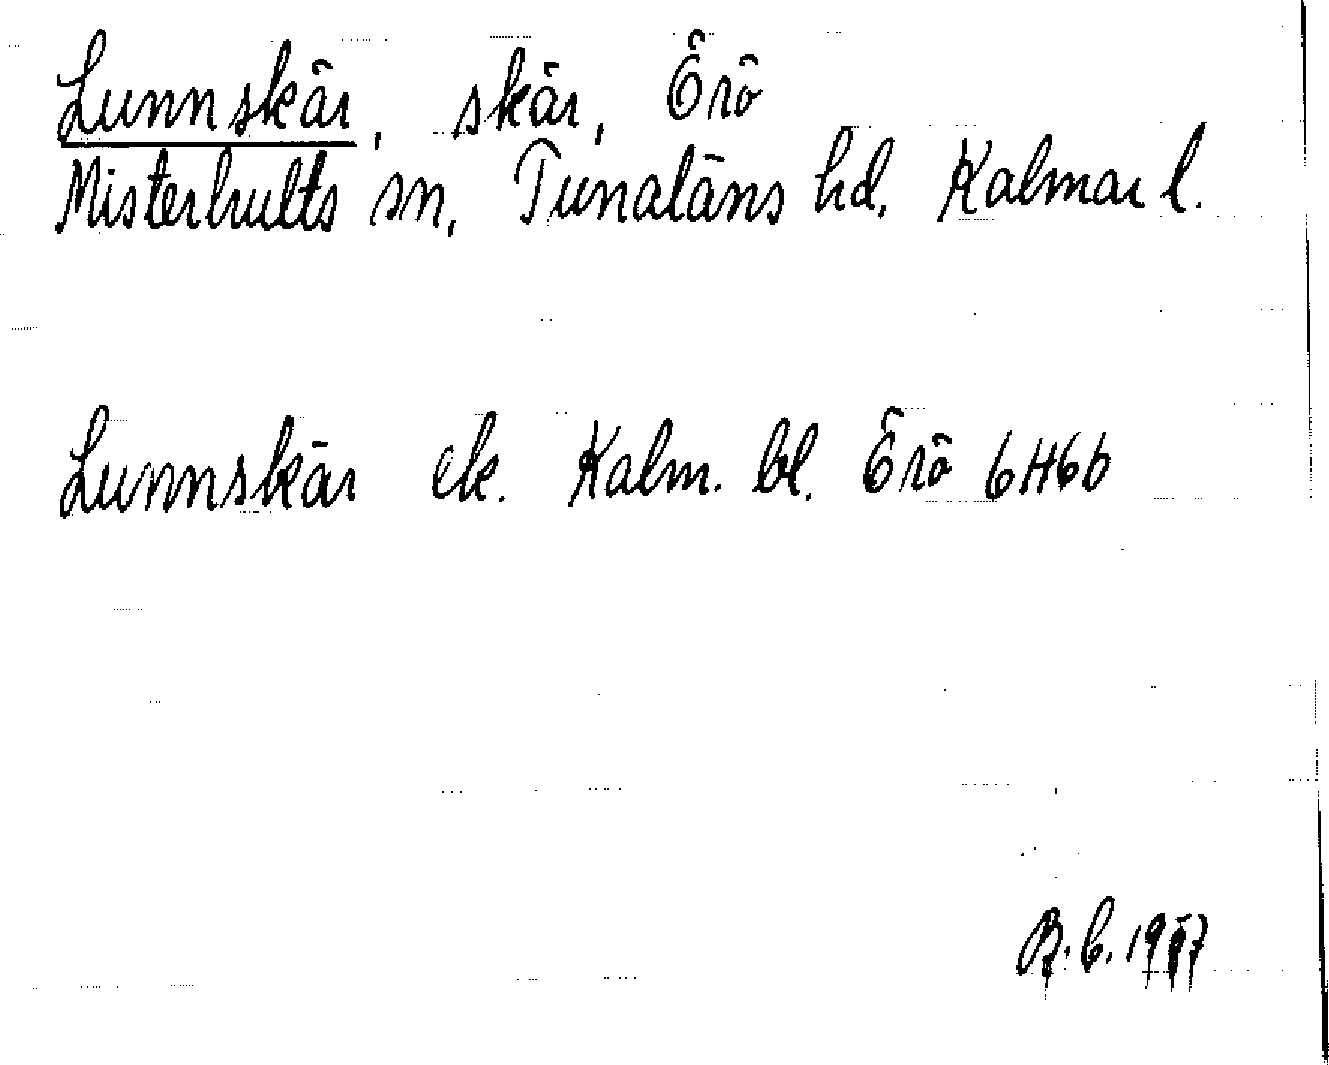 Lunnskär, skär, Örö
Misterhults sn, Tunaläns hd, Kalmar l.
Lunnskär ek. Kalm. bl. Örö 6H6b
B.b.